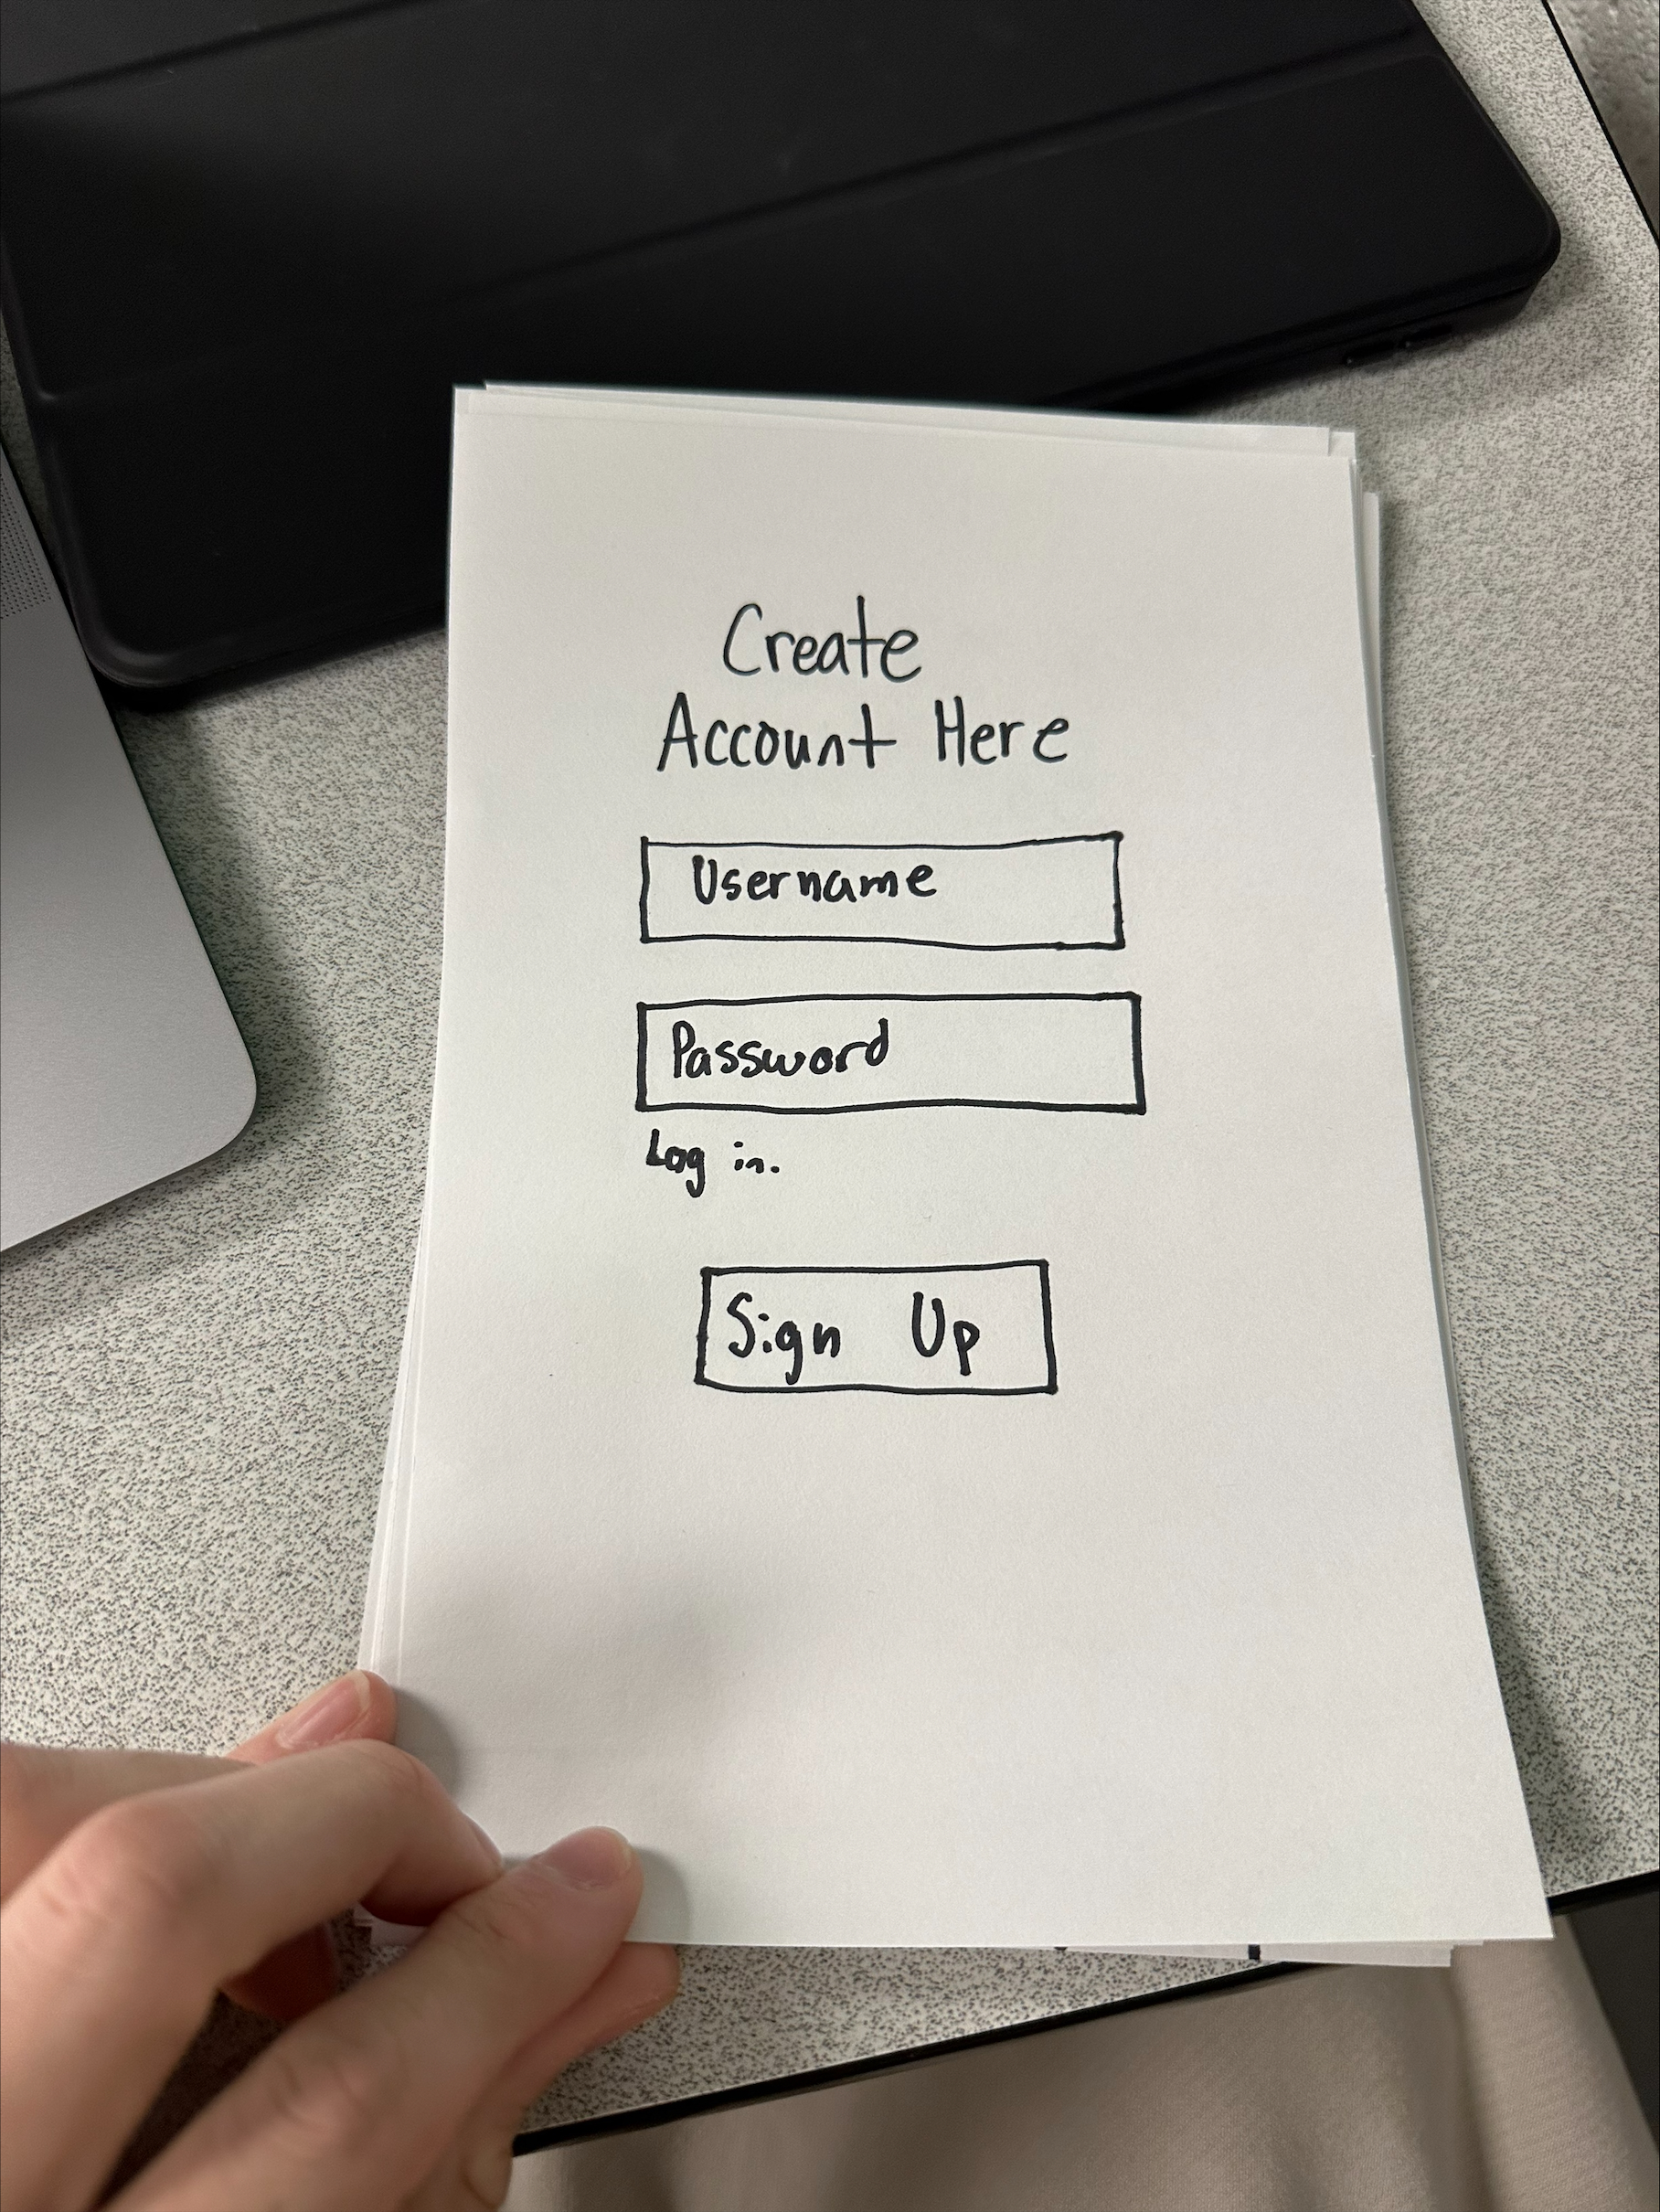 Create
Account Here
Username
Password
Log in.
Sign Up